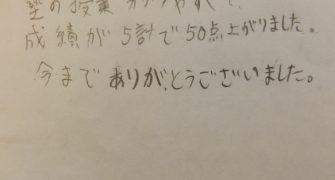 塾の授業分かりやすくて、
成績が5計で50点上がりました。
今までありがとうございました。